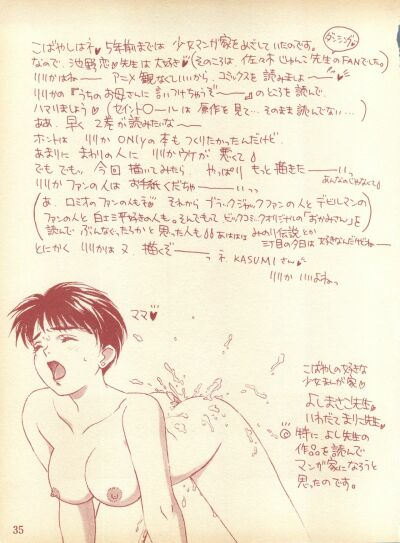 こばやしはネ♥5年前までは少女マンガ家をめざしていたのです。
なので、池野恋先生は大好き♥(そのころは、佐々木じゅんこ先生のFANでした。)
ダンシング♥
リリカはねー アニメ観なくていいから、コミックスを読みましょー♥
リリカの『うちのお母さんに言いつけちゃうぞー』のところを読んで、
ハマりましょう♥(セイント〇ールは原作を見て…そのまま読んでない…)
ああ、早く2巻が読みたいなー
ホントは リリカONLYの本もつくりたかったんだけど、
あまりに まわりの人に リリカウケが 悪くて
でも でもっ、今回 描いてみたら、やっぱり もっと描きたーいっっ
あんなのじゃなくて
リリカファンの人は お手紙くだちゃーいっっ
(あ、ロミオのファンの人もぞ それから ブラックジャックファンの人とデビルマンの
ファンの人と白土三平好きの人も。そんでもって ビックコミックオリジナルの「おかみさん」を
読んで ぶんなぐったろかと思った人も あははは みのり伝説とか
三丁目の夕日は大好きなんだけどねー)
とにかく リリカは又、描くぞーっっ
ネ、KASUMIさん♥
リリカ いいよねっ
ママ♥
こばやしの好きな
少女まんが家♥
よしまさこ先生♥
いわだてまりこ先生♥
◎特に よし先生の
作品を読んで
マンガ家になろうと
思ったのです。
35